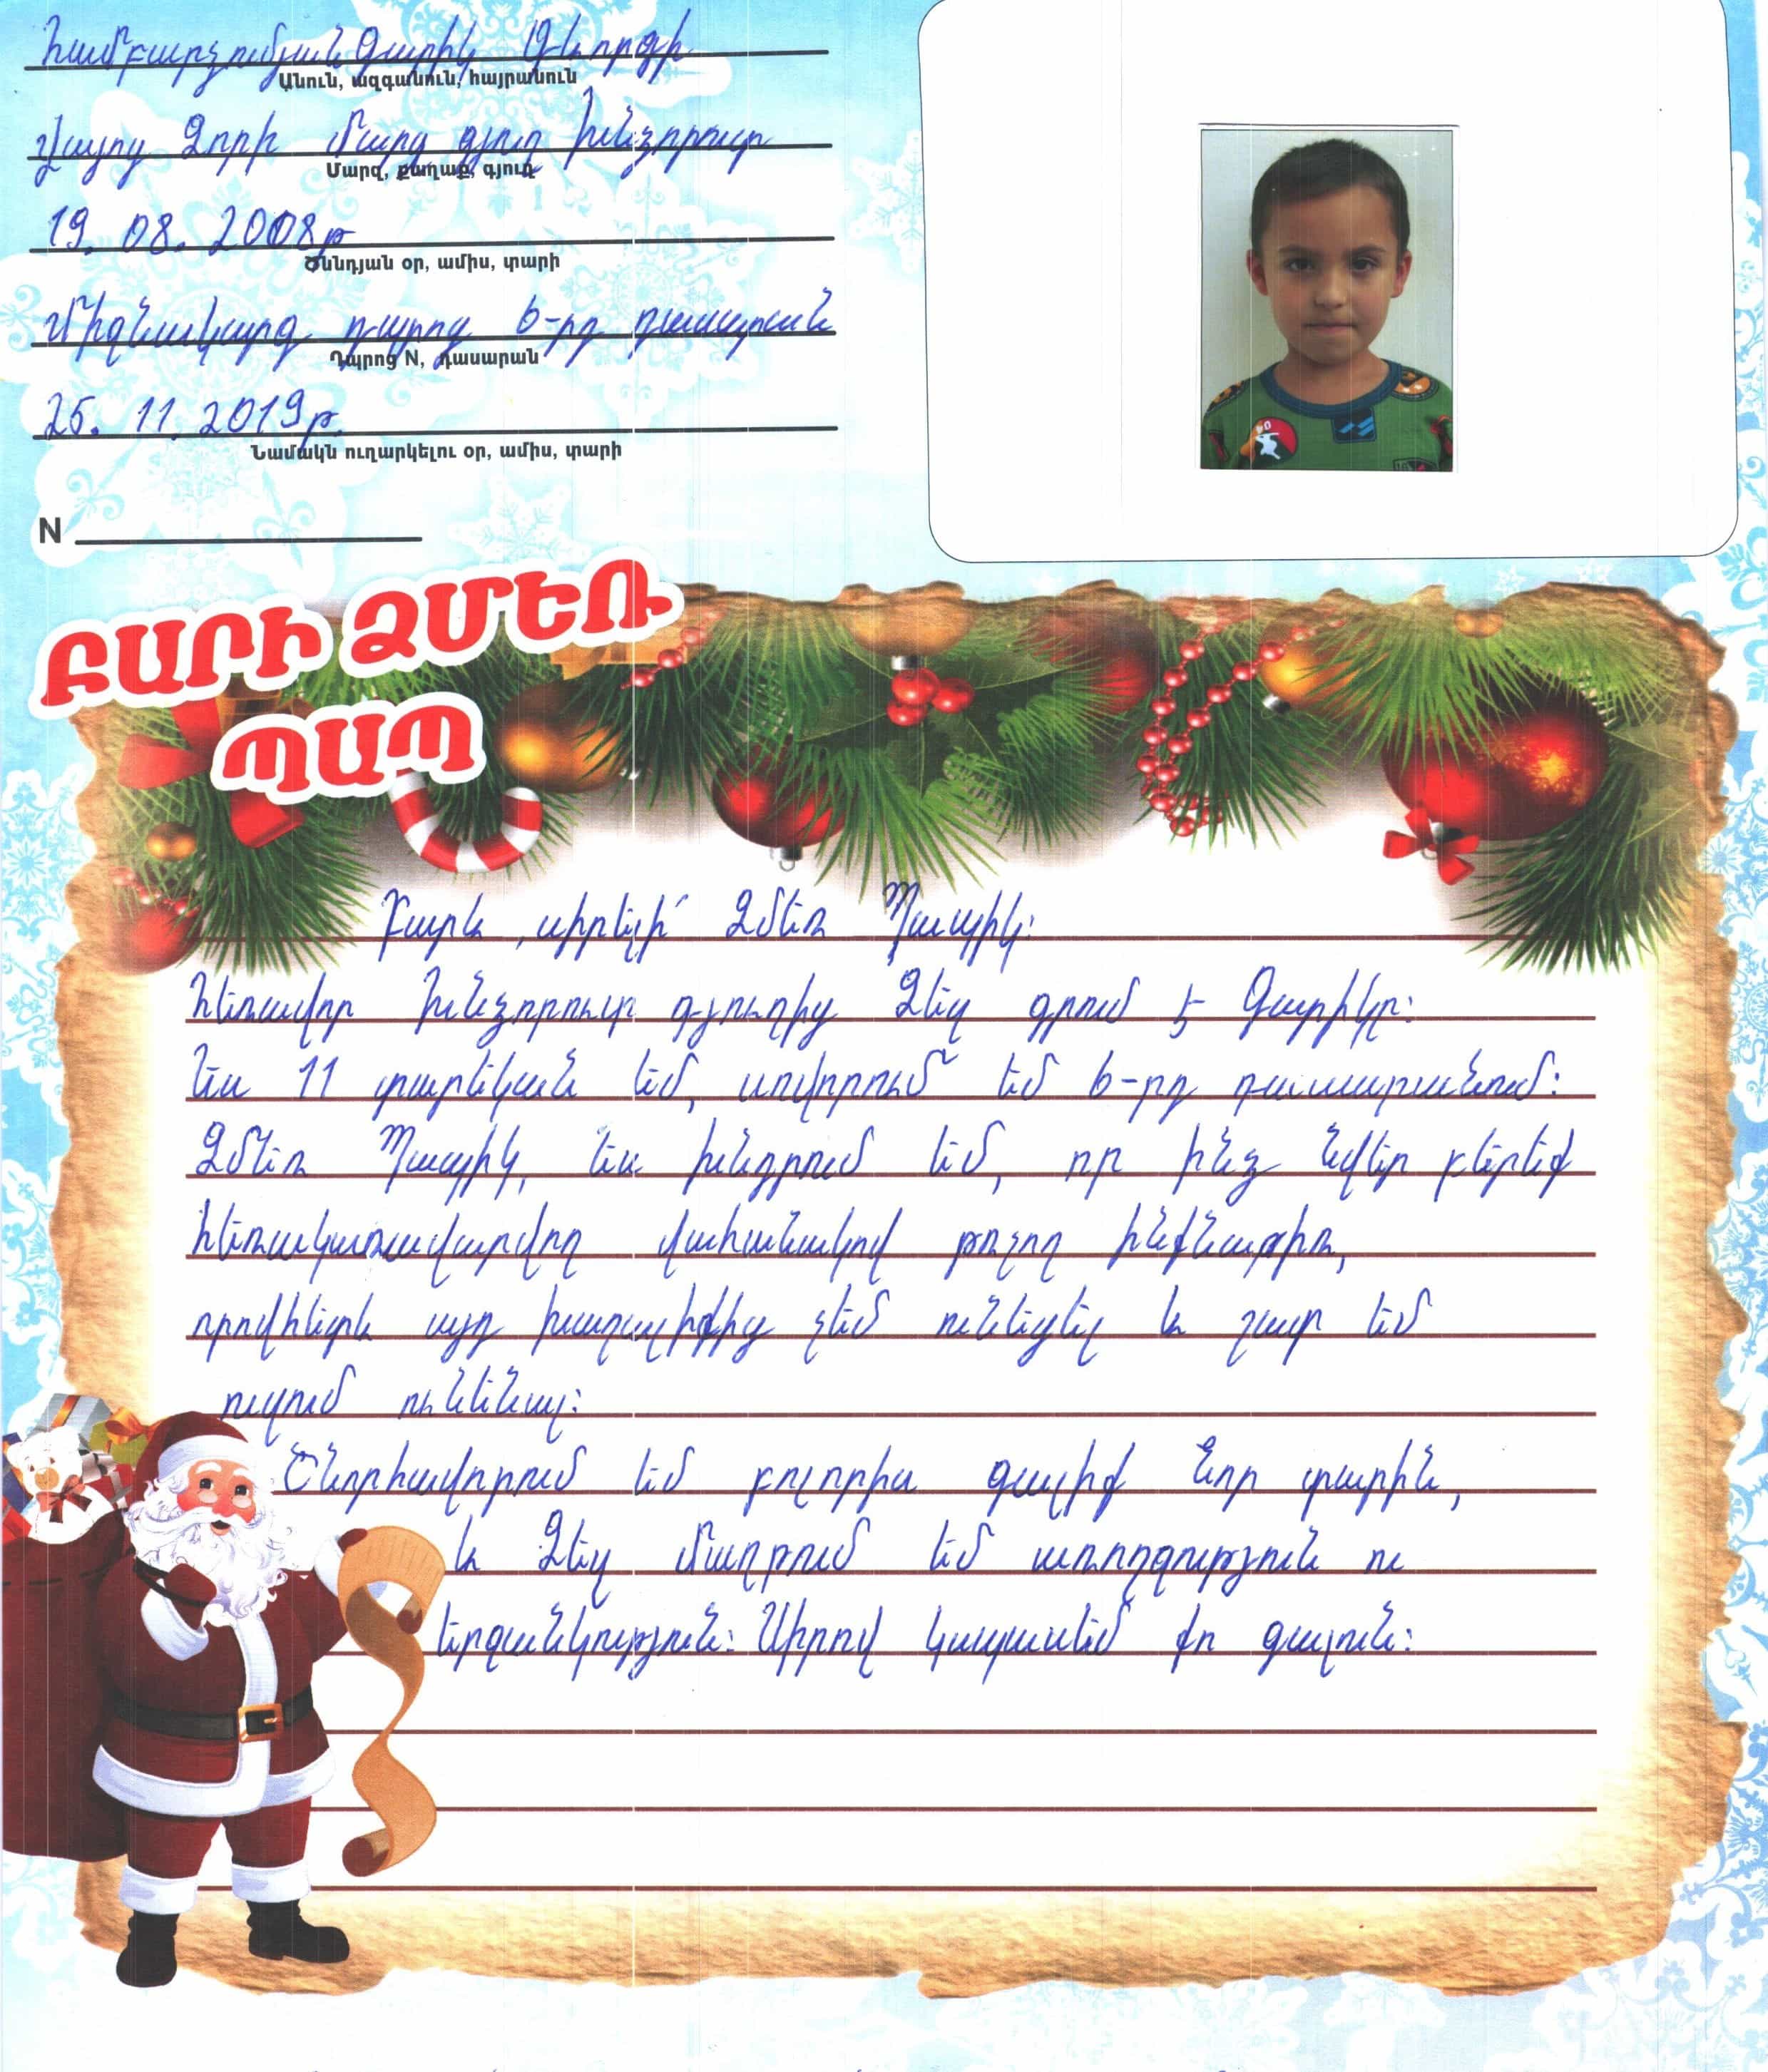 Համբարձումյան Գարիկ Գևորգի
Անուն, ազգանուն, հայրանուն
Վայոց Ձորի մարզ գյուղ Խնձորուտ
Մարզ, քաղաք, գյուղ
19. 08. 2008թ
Ծննդյան օր, ամիս, տարի
Միջնակարգ դպրոց 6-րդ դասարան
Դպրոց N, դասարան
25. 11. 2019թ.
Նամակն ուղարկելու օր, ամիս, տարի
N
ԲԱՐԻ ՁՄԵՌ
ՊԱՊ
Բարև, սիրելի՛ Ձմեռ Պապիկ:
Հեռավոր Խնձորուտ գյուղից Ձեզ գրում է Գարիկը:
Ես 11 տարեկան եմ, սովորում եմ 6-րդ դասարանում:
Ձմեռ Պապիկ, ես խնդրում եմ, որ ինձ նվեր բերեք
հեռակառավարվող վահանակով թռչող ինքնաթիռ,
որովհետև այդ խաղալիքից չեմ ունեցել և շատ եմ
ուզում ունենալ:
Շնորհավորում եմ բոլորիս գալիք Նոր տարին,
և Ձեզ մաղթում եմ առողջություն ու
երջանկություն: Սիրով կսպասեմ քո գալուն: